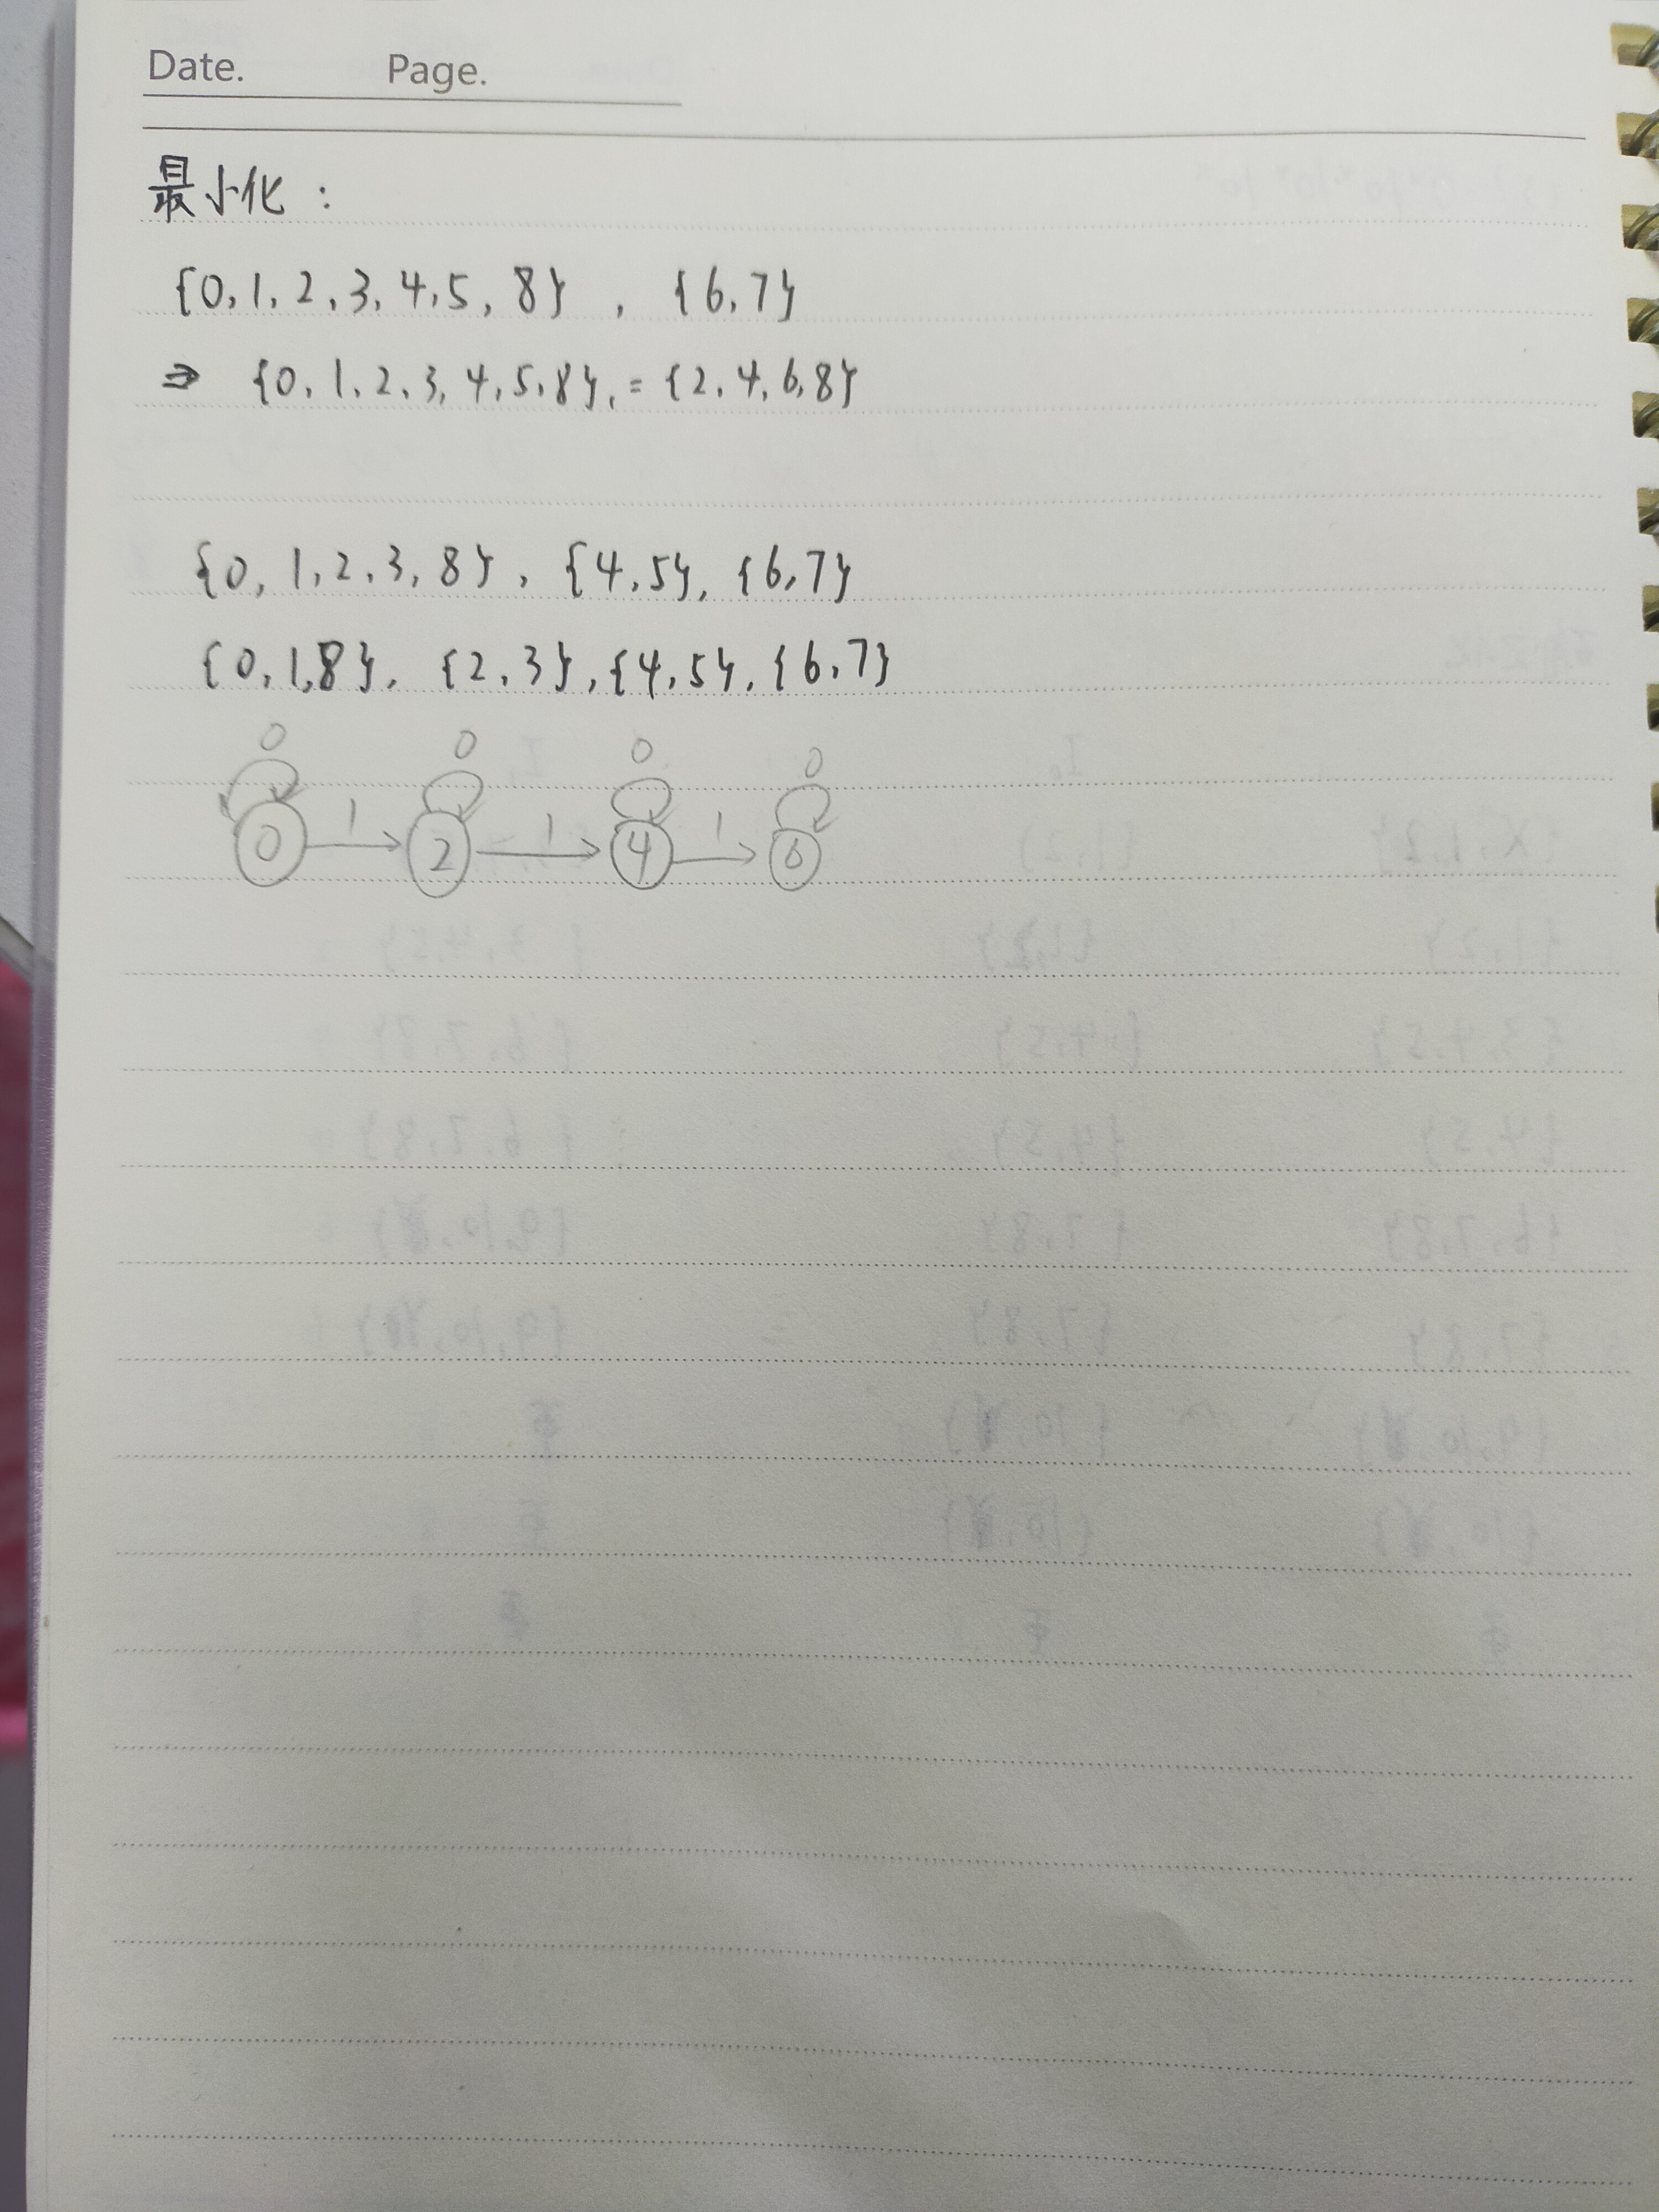 Date. Page.
最小化：
{0, 1, 2, 3, 4, 5, 8} , {6, 7}
⇒ {0, 1, 2, 3, 4, 5, 8}, = {2, 4, 6, 8}
{0, 1, 2, 3, 8} , {4, 5}, {6, 7}
{0, 1, 8}, {2, 3}, {4, 5}, {6, 7}
0 0 0 0
1 1 1
0 2 4 6